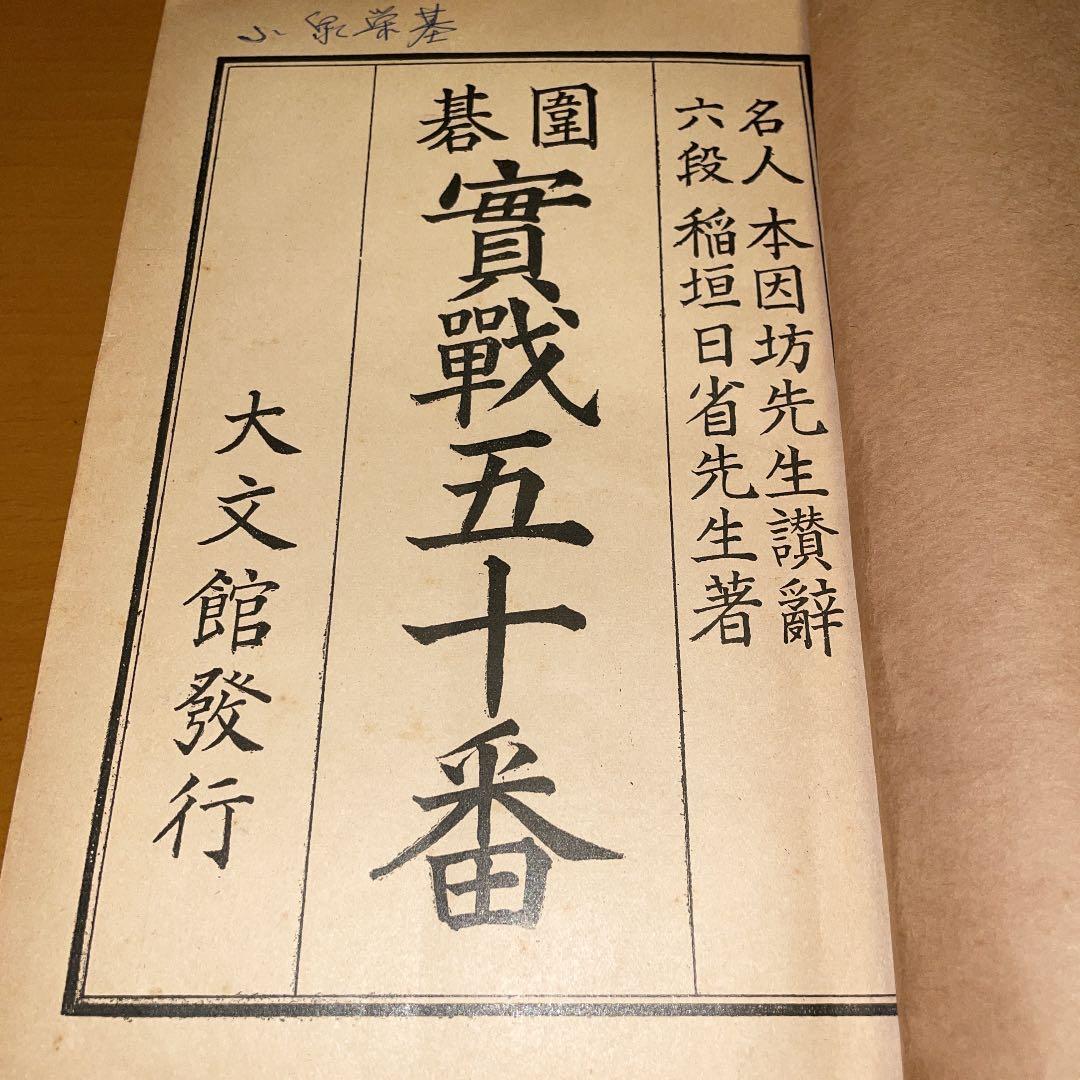 小泉栄基
名人 本因坊先生讃辭
六段 稲垣日省先生著
圍碁
實戰五十番
大文館發行